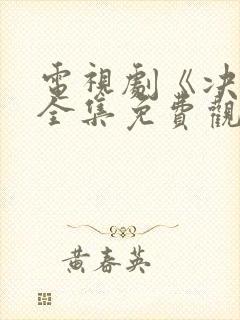 電視劇《决
全集免費觀
黄春英